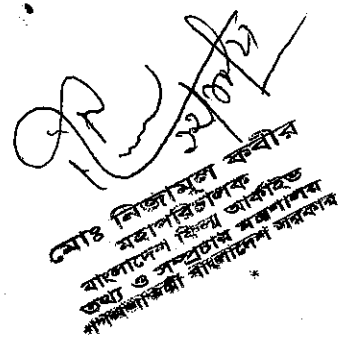 মোঃ নিজামূল কবীর
মহাপরিচালক
বাংলাদেশ ফিল্ম আর্কাইভ
তথ্য ও সম্প্রচার মন্ত্রণালয়
গণপ্রজাতন্ত্রী বাংলাদেশ সরকার